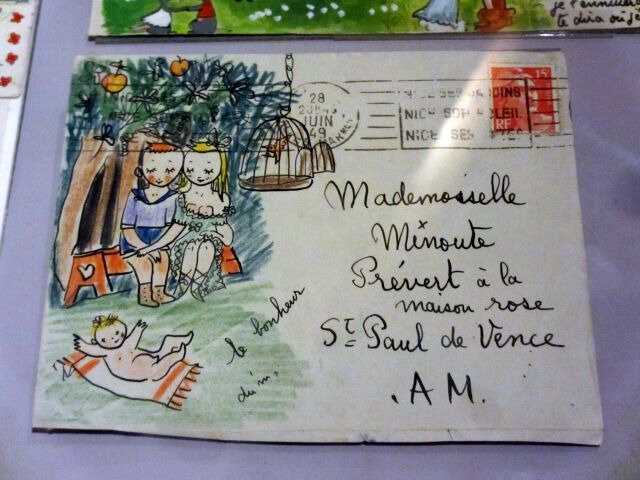 je t'ennuierai
te dira où j
28
JUIN
49
15F
RF
NICE SES JARDINS
NICE SON SOLEIL
NICE SES
CANNES
Mademoiselle
Minoute
Prévert à la
maison rose
St Paul de Vence
.A M.
le bonheur
du m.